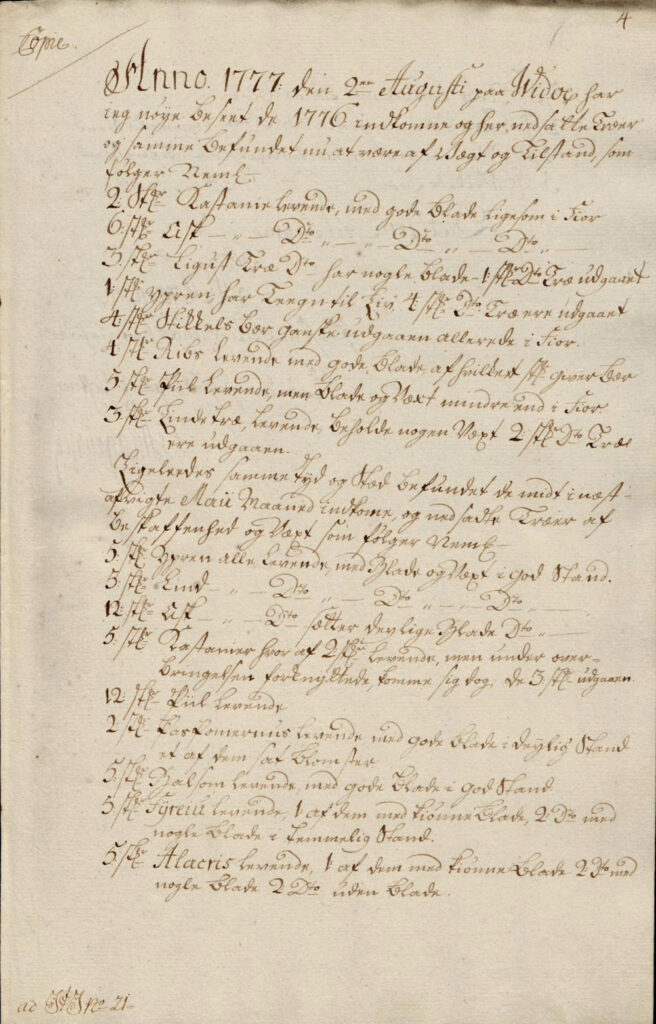 4
Copie.
Anno. 1777. den 2en Augusti paa Widoe har
ieg nøye beseet de 1776 indkomne og her nedsatte Træer
og samme befundet nu at være af Vægt og Tilstand, som
følger Neml.
2 Stkr Kastanie levende, med gode blade ligesom i Fior
6. stkr Ask — „ — Dto — „ — Dto „ — Dto „
3. stkr Ligust Træ Dto har nogle blade - 1 stkr Dto Træ udgaaet
1. stk Ypren har Teegn til Liv. 4 stkr Dto Træ ere udgaaet
4 stkr Stikkels bær ganske udgaaen allerede i Fior.
4 stkr Ribs levende med gode blade, af hvilket stk giver bær
5 stkr Piil levende, men blade og Væxt mindre end i Fior
3. stkr Linde træ, levende, beholde nogen Væxt 2 stkr Dto Træe
ere udgaaen.
Ligeleedes samme Tyd og Stæd befundet de midt i næst-
afvigte Maii Maaned indkomne, og nedsadte Træer af
beskaffenhed og Væxt som følger Neml.
5. stkr Ypren alle levende, med Blade og Væxt i god Stand.
5. stkr Lind — „ — Dto „ — Dto „ — „ — Dto „
12. stkr Ask — „ — Dto sætter deylige Blade Dto „
5. stkr Kastanier hvor af 2 stkr levende, men under over-
bringelsen forknyttede, komme sig dog, de 3. stkr udgaaen
12 stkr Piil levende
2 stkr levende med gode blade i deylig Stand
et af dem sat blomster
5. stkr Balsom levende, med gode blade i god Stand
5 stkr levende, 1 af dem med kiønne blade, 2 Dto med
nogle blade i temmelig Stand.
5. stkr Alacris levende, 1 af dem med kiønne blade 2 Dto med
nogle blade 2 Dto uden blade.
ad No 21